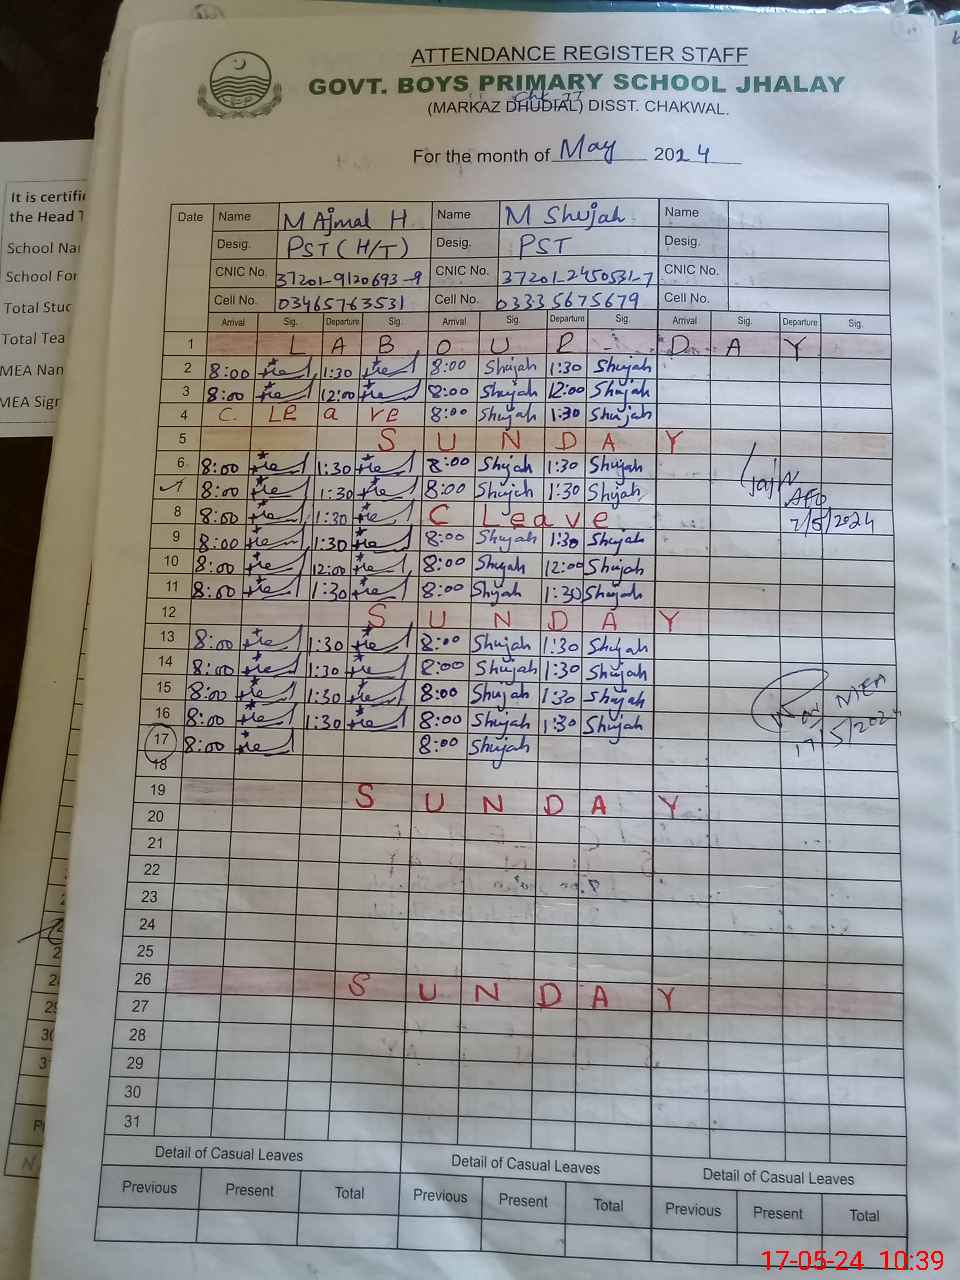 ATTENDANCE REGISTER STAFF
GOVT. BOYS PRIMARY SCHOOL JHALAY
(MARKAZ DHUDIAL) DISST. CHAKWAL.
For the month of May 2024
It is certifi
the Head T
School Nar
School For
Total Stud
Total Tea
MEA Nan
MEA Sigr
Date Name M Ajmal H Name M Shujah Name
Desig. PST (H/T) Desig. PST Desig.
CNIC No. 37201-9120693-9 CNIC No. 37201-2450531-7 CNIC No.
Cell No. 03465763531 Cell No. 03335675679 Cell No.
Arrival Sig. Departure Sig. Arrival Sig. Departure Sig. Arrival Sig. Departure Sig.
1 LABOUR DAY
2 8:00 1:30 8:00 Shujah 1:30 Shujah
3 8:00 12:00 8:00 Shujah 12:00 Shujah
4 C. Leave 8:00 Shujah 1:30 Shujah
5 SUNDAY
6 8:00 1:30 8:00 Shujah 1:30 Shujah
7 8:00 1:30 8:00 Shujah 1:30 Shujah AEO
8 8:00 1:30 C Leave 7/5/2024
9 8:00 1:30 8:00 Shujah 1:30 Shujah
10 8:00 12:00 8:00 Shujah 12:00 Shujah
11 8:00 1:30 8:00 Shujah 1:30 Shujah
12 SUNDAY
13 8:00 1:30 8:00 Shujah 1:30 Shujah
14 8:00 1:30 8:00 Shujah 1:30 Shujah
15 8:00 1:30 8:00 Shujah 1:30 Shujah MEA
16 8:00 1:30 8:00 Shujah 1:30 Shujah 17/5/2024
17 8:00 8:00 Shujah
18
19 SUNDAY
20
21
22
23
24
25
26 SUNDAY
27
28
29
30
31
Detail of Casual Leaves Detail of Casual Leaves Detail of Casual Leaves
Previous Present Total Previous Present Total Previous Present Total
17-05-24 10:39